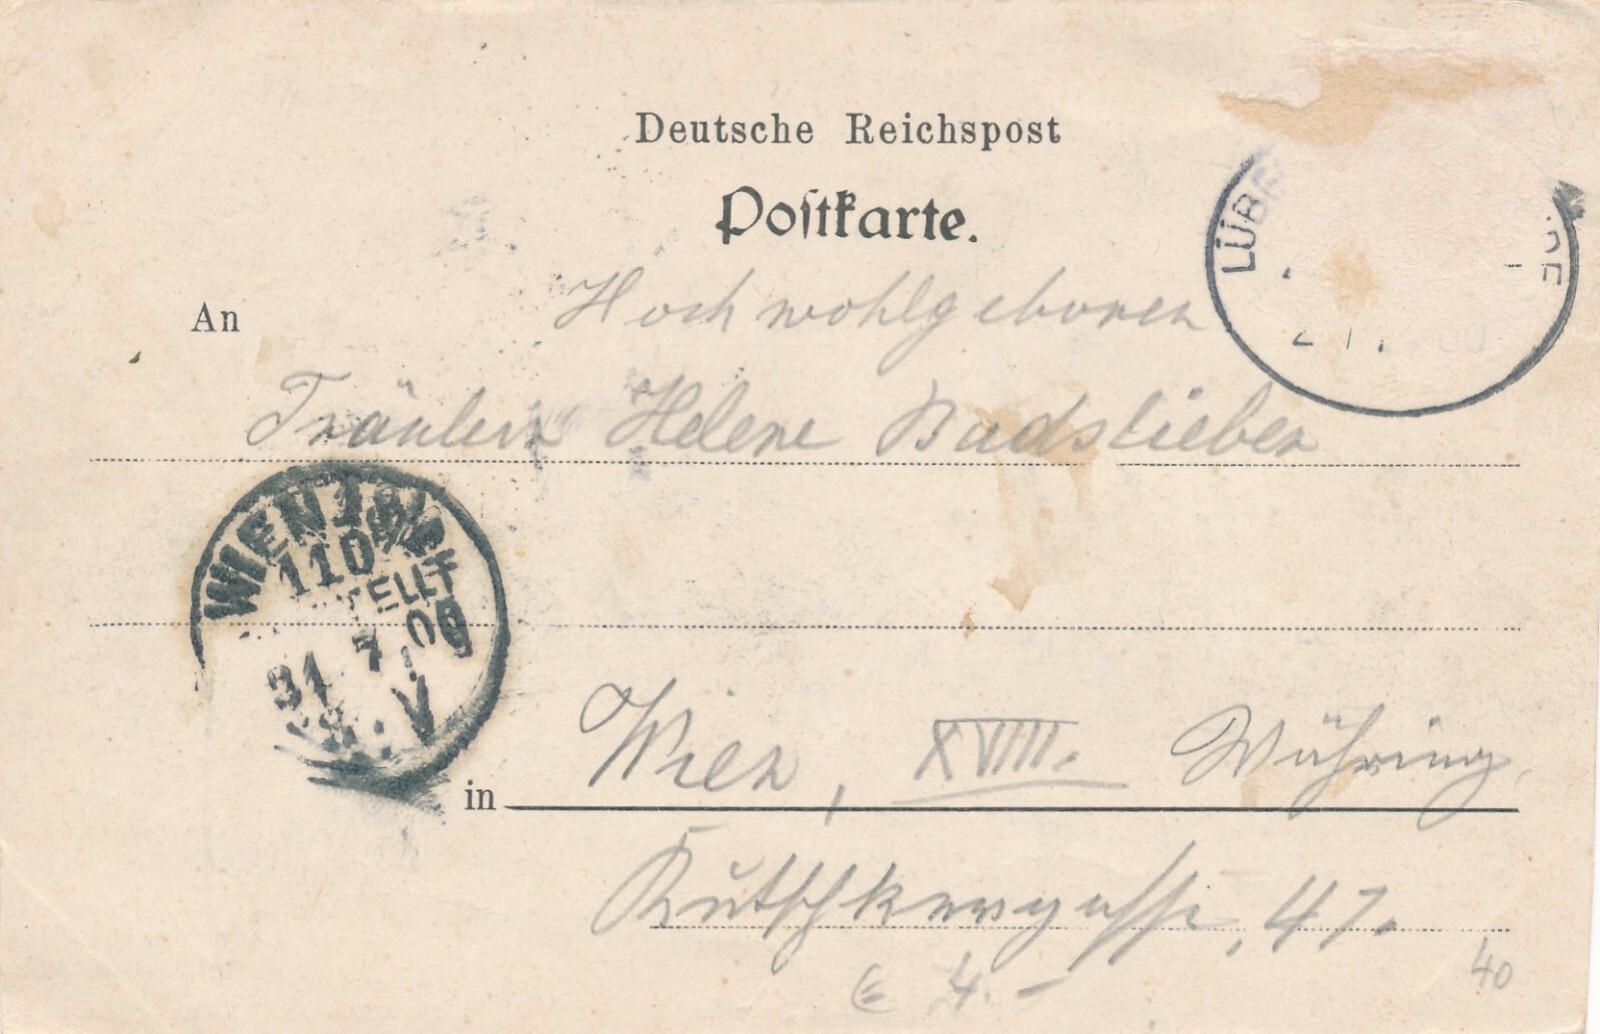 Deutsche Reichspost
Postkarte.
LÜBE
An
Hochwohlgeboren
Fräulein Helene Budslieber
WIEN
110
ELLT
31 7 00
V
in Wien, XVIII. Währing,
Kutschkergasse, 47.
€ 4.-
40